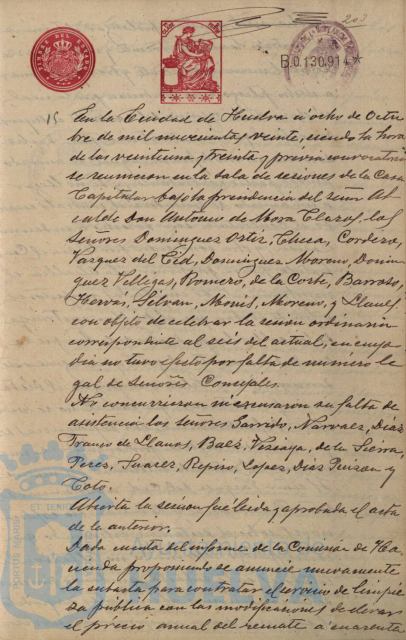 203
TIMBRE DEL ESTADO
B.0.130.914*
15 En la Ciudad de Huelva a ocho de Octu
bre de mil novecientos veinte, siendo la hora
de las veintiuna y treinta y previa convocatoria
se reunieron en la sala de sesiones de la Casa
Capitular bajo la presidencia del señor Al
calde Don Antonio de Mora Claros, los
Señores Dominguez Ortiz, Checa, Cordero,
Vazquez del Cid, Dominguez Moreno, Domin
guez Villegas, Romero, de la Corte, Barroso,
Hervas, Selvan, Monis, Moreno, y Llanes
con objeto de celebrar la sesion ordinaria
correspondiente al seis del actual, en cuyo
dia no tuvo efecto por falta de número le
gal de señores Concejales.
No concurrieron ni excusaron su falta de
asistencia los señores Garrido, Narvaez, Diaz
Franco de Llanos, Baez, Vizcaya, de la Sierra,
Perez, Suarez, Repiso, Lopez, Diaz Pinzon y
Toto.
Abierta la sesion fué leida y aprobada el acta
de la anterior.
Dada cuenta del informe de la Comision de Ha
cienda proponiendo se anuncie nuevamente
la subasta para contratar el servicio de limpie
za pública con las modificaciones de elevar
el precio anual del remate a cuarenta
PORTUS MARIS
ET TERRE
HUELVA